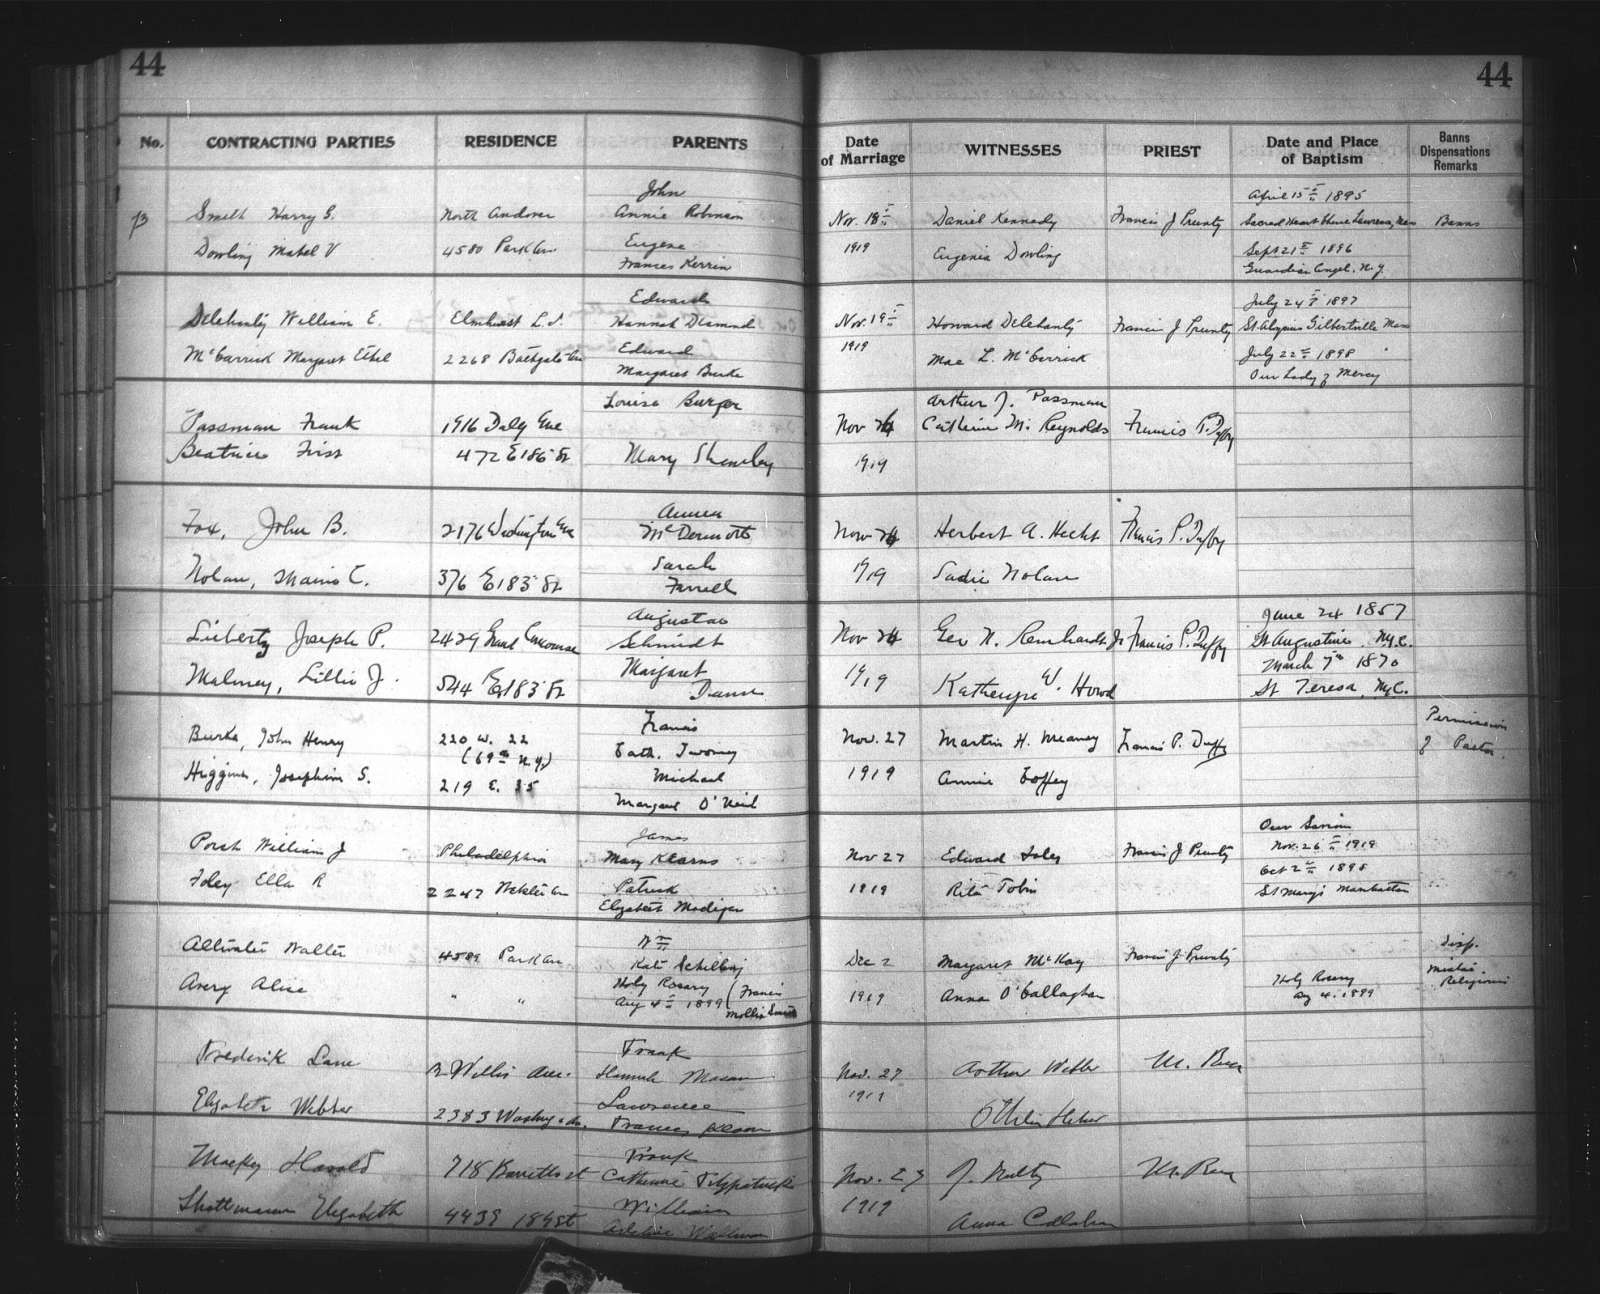 44
44
No. CONTRACTING PARTIES RESIDENCE PARENTS Date of Marriage WITNESSES PRIEST Date and Place of Baptism Banns Dispensations Remarks
John April 15 1895
Smith Harry G. North Andover Annie Robinson Nov. 18 Daniel Kennedy Francis J Prunty Sacred Heart Lawrence, Mass Banns
Dowling Mabel V 4580 Park Ave Eugene 1919 Eugenia Dowling Sept 21 1896
Frances Kerrin Guardian Angel. N.Y.
Edward July 24 1897
Delehanty William E. Elmhurst L.I. Hannah Diamond Nov. 19 Howard Delehanty Francis J Prunty St Aloysius Gilbertville Mass
McCarrick Margaret Ethel 2268 Bathgate Ave Edward 1919 Mae L. McCarrick July 22 1898
Margaret Burke Our Lady of Mercy
Louisa Burger Arthur J. Passman
Passman Frank 1916 Daly Ave Nov 26 Catherine M. Reynolds Francis P. Duffy
Beatrice 472 E 186 St Mary 1919
Anna
Fox, John B. 2176 Washington Ave McDermott Nov 26 Herbert A. Hecht Francis P. Duffy
Nolan, Mamie C. 376 E 183 St Sarah Farrell 1919 Sadie Nolan
Augusta June 24 1857
Lieberty Joseph P. 2429 Grand Concourse Schmidt Nov 26 Geo N. Reinhardt Jr Francis P. Duffy St Augustine. N.Y.C.
Margaret March 7th 1870
Maloney, Lillie J. 544 E 183 St Dunn 1919 Katheryn W. Howd St Teresa, N.Y.C.
Francis Permission
Burke, John Henry 220 W. 22 Cath. Twomey Nov. 27 Martin H. Meaney Francis P. Duffy of Pastor.
(69th N.Y.)
Higgins, Josephine S. 219 E. 35 Michael 1919 Annie Coffey
Margaret O'Neil
James Our Saviour
Porsh William J Philadelphia Mary Kearns Nov 27 Edward Foley Francis J Prunty Nov. 26 1919
Foley Ella R 2247 Webster Ave Patrick 1919 Rita Tobin Oct 2 1898
Elizabeth Madigan St Mary's Manhattan
Wm Disp.
Attwater Walter 4589 Park Ave Kate Schilling Dec 2 Margaret McKay Francis J Prunty Mixtae
Avery Alice " " Holy Rosary (Francis 1919 Anna O'Callaghan Holy Rosary Religionis
Aug 4 1899 Mollie Smith Aug 4. 1899
Frederik Lane Willis Ave. Frank Nov. 27 Arthur Webber
Hannah 1919
Elizabeth Webber 2383 Washing. Av. Lawrence
Frances
Mackey Harold 718 Barretto st Frank Nov. 27 J. Nulty
Catherine Fitzpatrick 1919
Elizabeth 4439 184 st William Anna
Adelaide